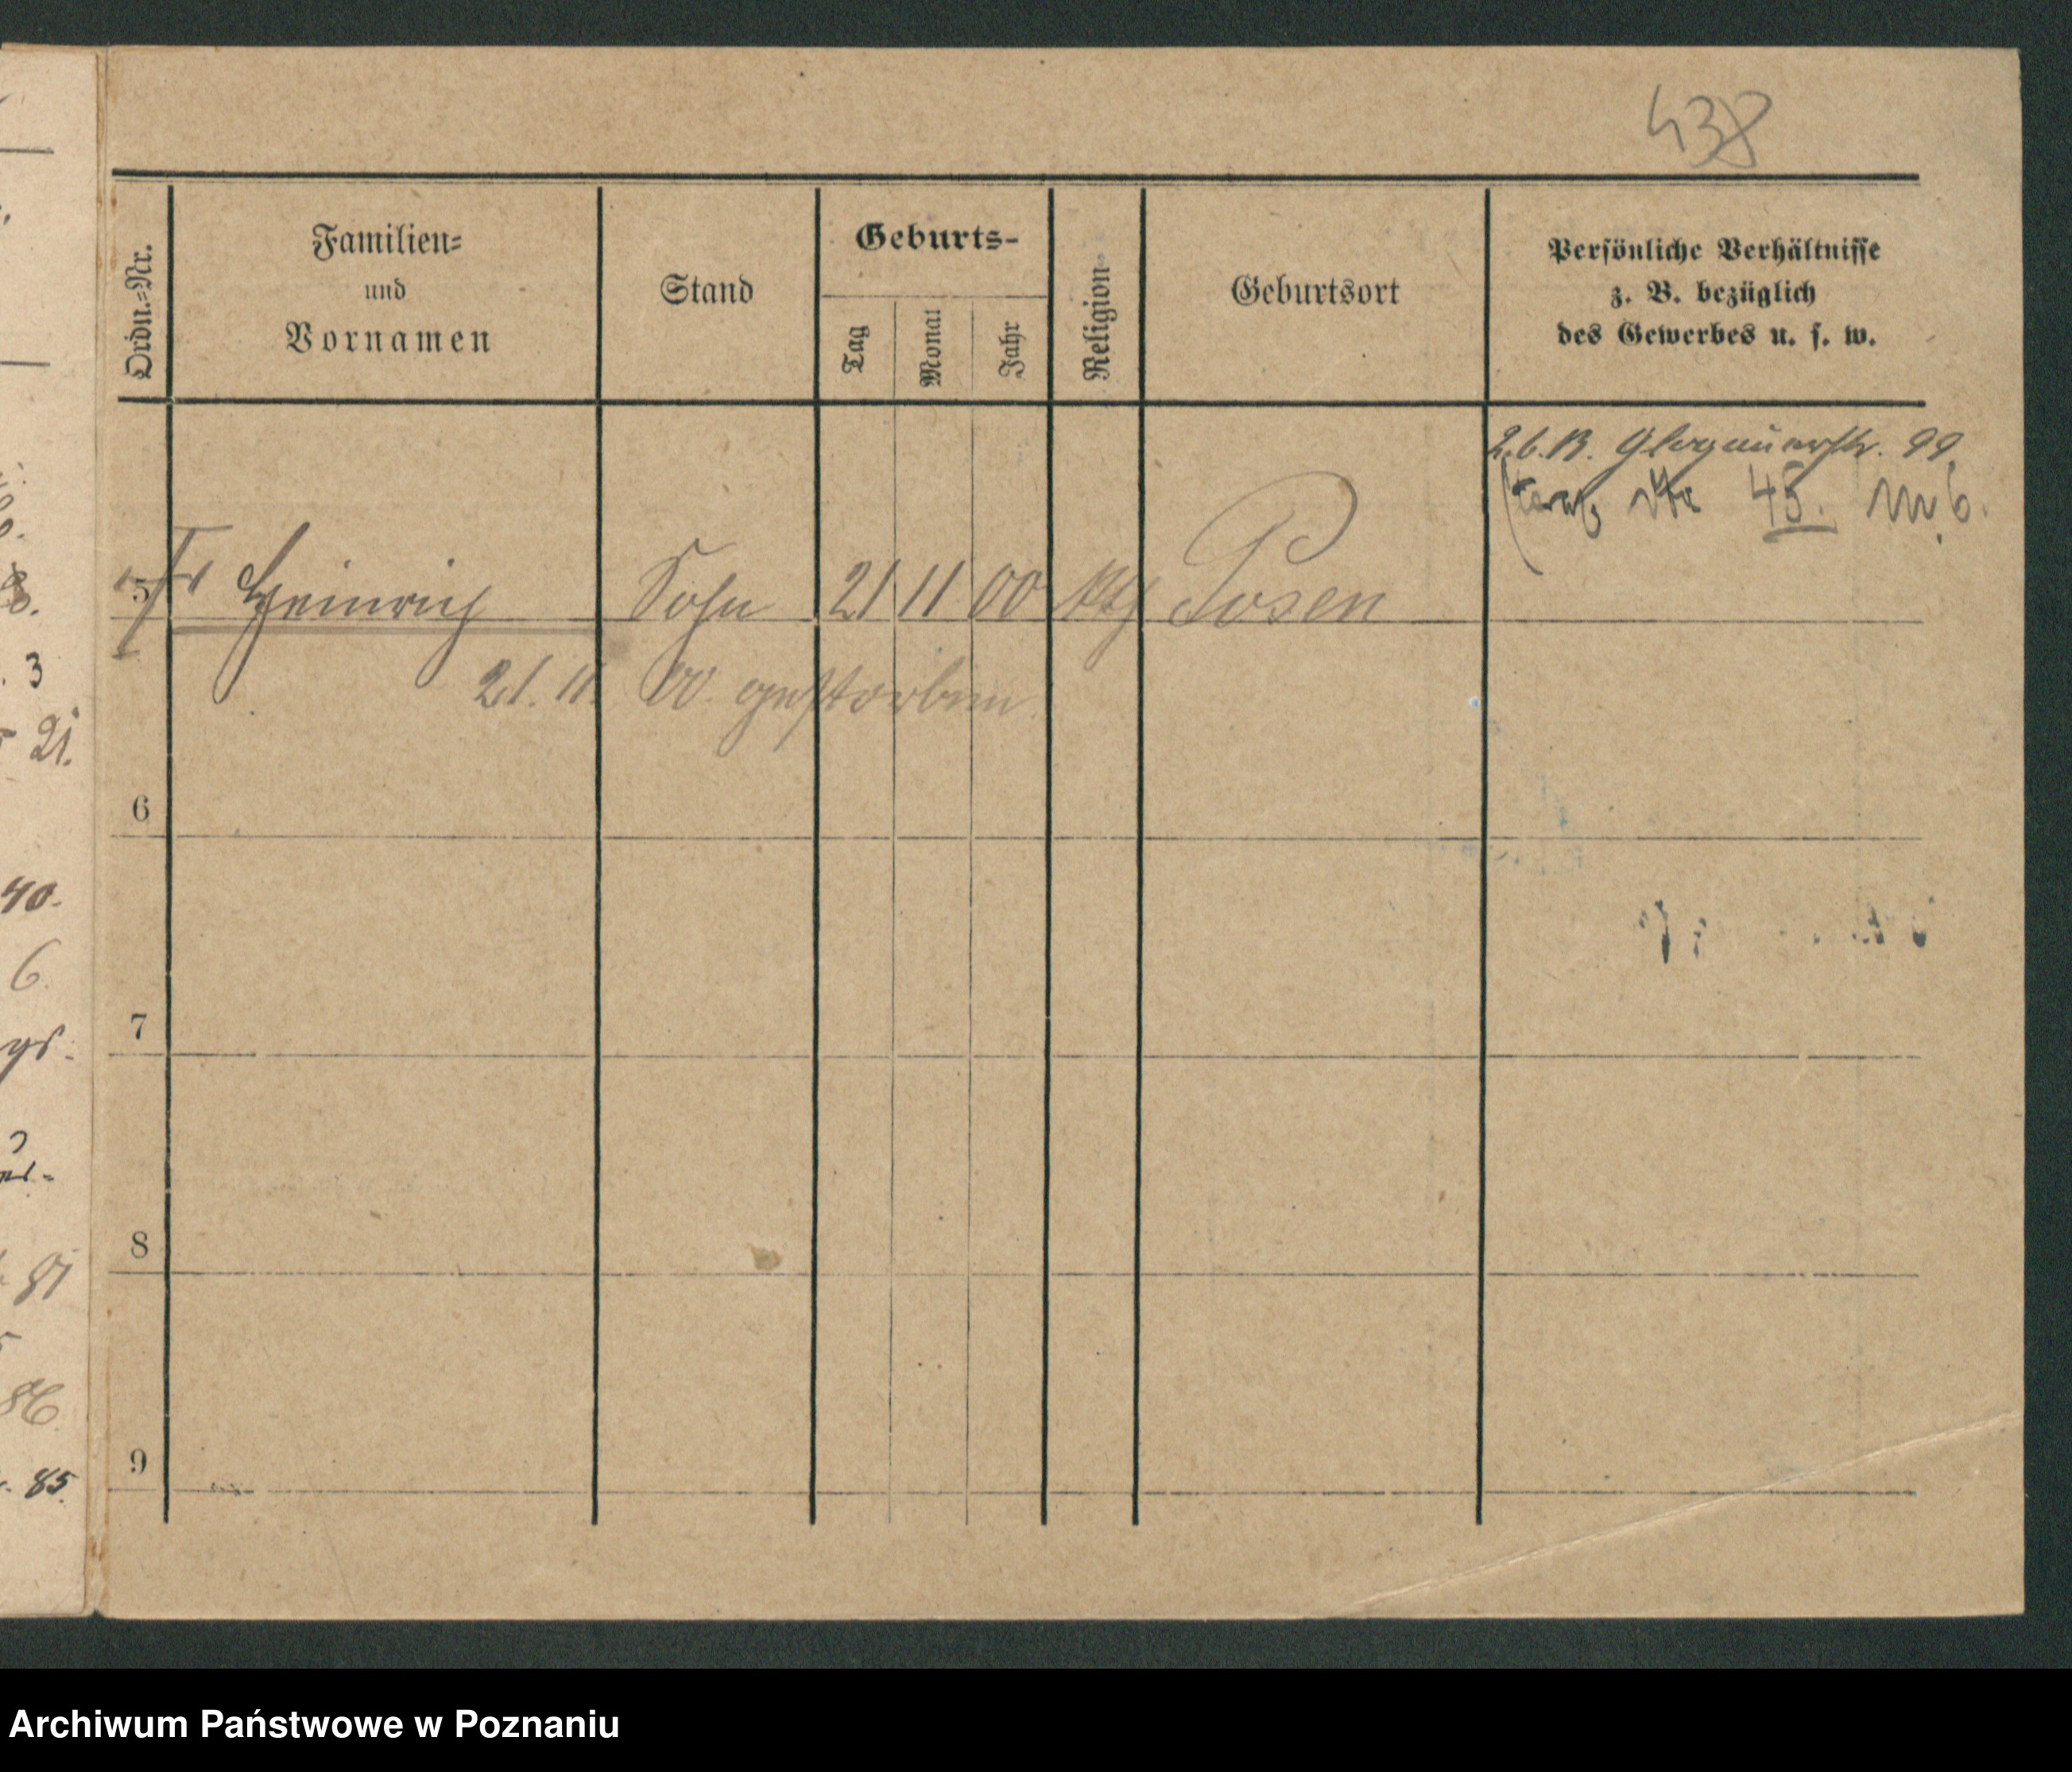 438
Ordn.=Nr.
Familien=
und
Vornamen
Stand
Geburts-
Tag
Monat
Jahr
Religion
Geburtsort
Persönliche Verhältnisse
z. B. bezüglich
des Gewerbes u. s. w.
2.6.13. Glogauerstr. 99
45. 6.
5 Heinrich Sohn 21 11 00 kth Posen
21. 11. 00. gestorben
6
7
8
9
3
21.
40.
6.
81
86
85.
Archiwum Państwowe w Poznaniu